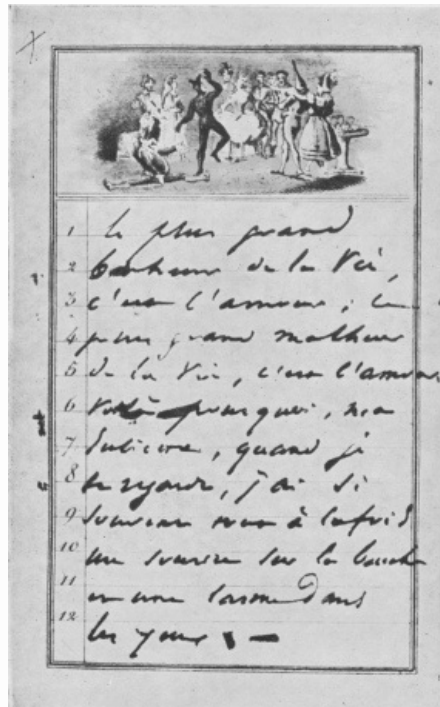 1 le plus grand
2 bonheur de la vie,
3 c'est l'amour ; le
4 plus grand malheur
5 de la vie, c'est l'amour
6 voilà pourquoi, ma
7 Juliette, quand je
8 te regarde, j'ai si
9 souvent tout à la fois
10 un sourire sur la bouche
11 et une larme dans
12 les yeux